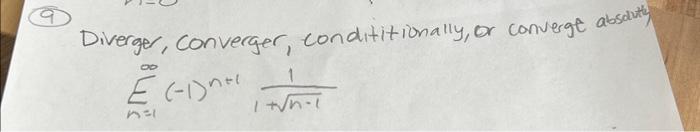 9
Diverger, converger, condititionally, or converge absolutely
∞
Σ (-1)^{n+1} 1/(1+√(n-1))
n=1